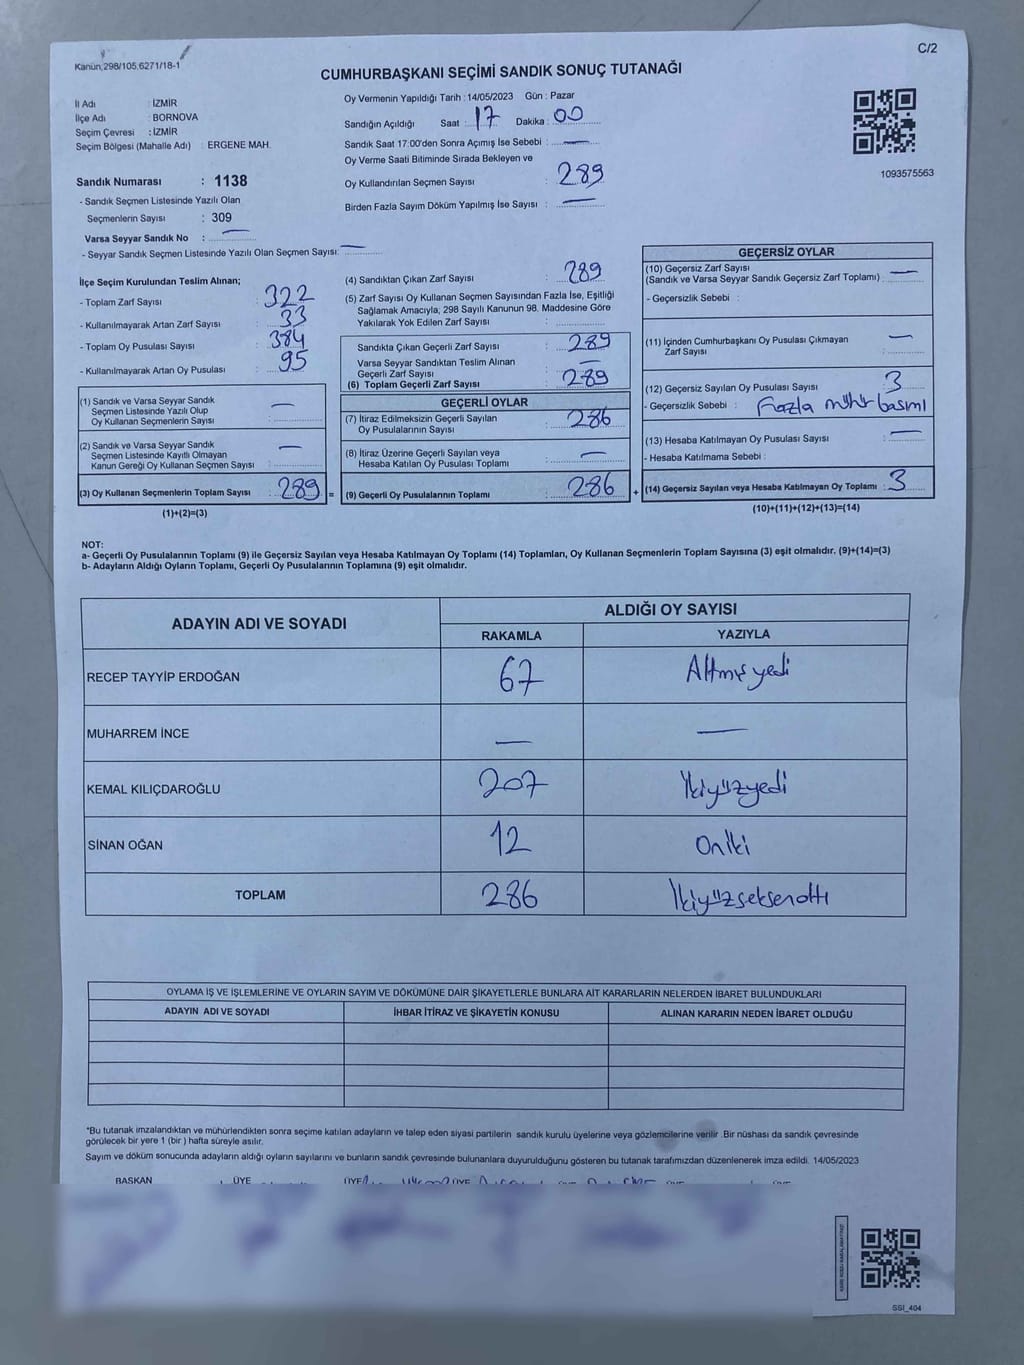 Kanun,298/105,6271/18-1
C/2
CUMHURBAŞKANI SEÇİMİ SANDIK SONUÇ TUTANAĞI
İl Adı : İZMİR
İlçe Adı : BORNOVA
Seçim Çevresi : İZMİR
Seçim Bölgesi (Mahalle Adı) : ERGENE MAH.
Sandık Numarası : 1138
- Sandık Seçmen Listesinde Yazılı Olan
Seçmenlerin Sayısı : 309
Varsa Seyyar Sandık No : —
- Seyyar Sandık Seçmen Listesinde Yazılı Olan Seçmen Sayısı: —
Oy Vermenin Yapıldığı Tarih : 14/05/2023 Gün : Pazar
Sandığın Açıldığı Saat : 17 Dakika : 00
Sandık Saat 17:00'den Sonra Açımış İse Sebebi : —
Oy Verme Saati Bitiminde Sırada Bekleyen ve
Oy Kullandırılan Seçmen Sayısı : 289
Birden Fazla Sayım Döküm Yapılmış İse Sayısı : —
1093575563
İlçe Seçim Kurulundan Teslim Alınan;
- Toplam Zarf Sayısı : 322
- Kullanılmayarak Artan Zarf Sayısı : 33
- Toplam Oy Pusulası Sayısı : 384
- Kullanılmayarak Artan Oy Pusulası : 95
(1) Sandık ve Varsa Seyyar Sandık
Seçmen Listesinde Yazılı Olup
Oy Kullanan Seçmenlerin Sayısı : —
(2) Sandık ve Varsa Seyyar Sandık
Seçmen Listesinde Kayıtlı Olmayan
Kanun Gereği Oy Kullanan Seçmen Sayısı : —
(3) Oy Kullanan Seçmenlerin Toplam Sayısı : 289 =
(1)+(2)=(3)
(4) Sandıktan Çıkan Zarf Sayısı : 289
(5) Zarf Sayısı Oy Kullanan Seçmen Sayısından Fazla İse, Eşitliği
Sağlamak Amacıyla; 298 Sayılı Kanunun 98. Maddesine Göre
Yakılarak Yok Edilen Zarf Sayısı :
Sandıkta Çıkan Geçerli Zarf Sayısı : 289
Varsa Seyyar Sandıktan Teslim Alınan
Geçerli Zarf Sayısı : —
(6) Toplam Geçerli Zarf Sayısı : 289
GEÇERLİ OYLAR
(7) İtiraz Edilmeksizin Geçerli Sayılan
Oy Pusulalarının Sayısı : 286
(8) İtiraz Üzerine Geçerli Sayılan veya
Hesaba Katılan Oy Pusulası Toplamı : —
(9) Geçerli Oy Pusulalarının Toplamı : 286 +
GEÇERSİZ OYLAR
(10) Geçersiz Zarf Sayısı
(Sandık ve Varsa Seyyar Sandık Geçersiz Zarf Toplamı) : —
- Geçersizlik Sebebi :
(11) İçinden Cumhurbaşkanı Oy Pusulası Çıkmayan
Zarf Sayısı : —
(12) Geçersiz Sayılan Oy Pusulası Sayısı : 3
- Geçersizlik Sebebi : Fazla mühür basımı
(13) Hesaba Katılmayan Oy Pusulası Sayısı : —
- Hesaba Katılmama Sebebi :
(14) Geçersiz Sayılan veya Hesaba Katılmayan Oy Toplamı : 3
(10)+(11)+(12)+(13)=(14)
NOT:
a- Geçerli Oy Pusulalarının Toplamı (9) ile Geçersiz Sayılan veya Hesaba Katılmayan Oy Toplamı (14) Toplamları, Oy Kullanan Seçmenlerin Toplam Sayısına (3) eşit olmalıdır. (9)+(14)=(3)
b- Adayların Aldığı Oyların Toplamı, Geçerli Oy Pusulalarının Toplamına (9) eşit olmalıdır.
ADAYIN ADI VE SOYADI
ALDIĞI OY SAYISI
RAKAMLA YAZIYLA
RECEP TAYYİP ERDOĞAN 67 Altmışyedi
MUHARREM İNCE — —
KEMAL KILIÇDAROĞLU 207 İkiyüzyedi
SİNAN OĞAN 12 Oniki
TOPLAM 286 İkiyüzseksenaltı
OYLAMA İŞ VE İŞLEMLERİNE VE OYLARIN SAYIM VE DÖKÜMÜNE DAİR ŞİKAYETLERLE BUNLARA AİT KARARLARIN NELERDEN İBARET BULUNDUKLARI
ADAYIN ADI VE SOYADI İHBAR İTİRAZ VE ŞİKAYETİN KONUSU ALINAN KARARIN NEDEN İBARET OLDUĞU
*Bu tutanak imzalandıktan ve mühürlendikten sonra seçime katılan adayların ve talep eden siyasi partilerin sandık kurulu üyelerine veya gözlemcilerine verilir .Bir nüshası da sandık çevresinde
görülecek bir yere 1 (bir ) hafta süreyle asılır.
Sayım ve döküm sonucunda adayların aldığı oyların sayılarını ve bunların sandık çevresinde bulunanlara duyurulduğunu gösteren bu tutanak tarafımızdan düzenlenerek imza edildi. 14/05/2023
BAŞKAN ÜYE ÜYE ÜYE
SSI_404